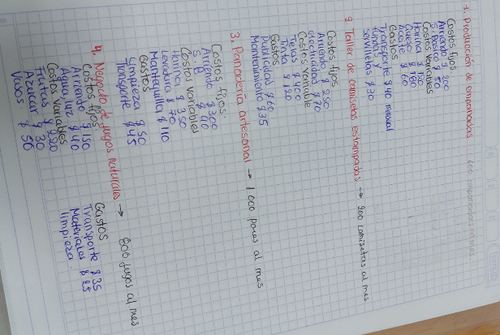 1. Producción de empanadas
Costos fijos
Arriendo $ 200
Costos variables
Harina $
Queso $ 180
Aceite $ 60
Gastos
Transporte $ 40 mensual
Servilletas $ 30
2. Taller de camisetas estampadas → 200 camisetas al mes
Costos fijos
Arriendo $ 250
electricidad $ 70
Costos variable
Tela $
Tinta $ 120
Gastos
Publicidad $ 60
Mantenimiento $ 35
3. Panadería artesanal → 1 000 panes al mes
Costos fijos:
Arriendo $ 300
$ 90
Costos variables
Harina $ 350
Levadura $ 70
Mantequilla $ 110
Gastos
Limpieza $ 50
Transporte $ 45
4. Negocio de jugos naturales → 800 jugos al mes
Costos fijos
Arriendo $ 150
Agua, luz $ 60
Costos variables
Frutas $ 220
Azucar $ 30
Vasos $ 50
Gastos
Transporte $ 35
Materiales $ 25
limpieza